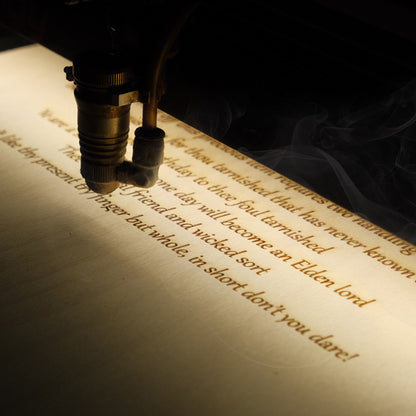 requires two handling
thou tarnished that has never known
day to three foul tarnished
day will become an Elden lord
friend and wicked sort
like thy present by finger but whole, in short don't you dare!